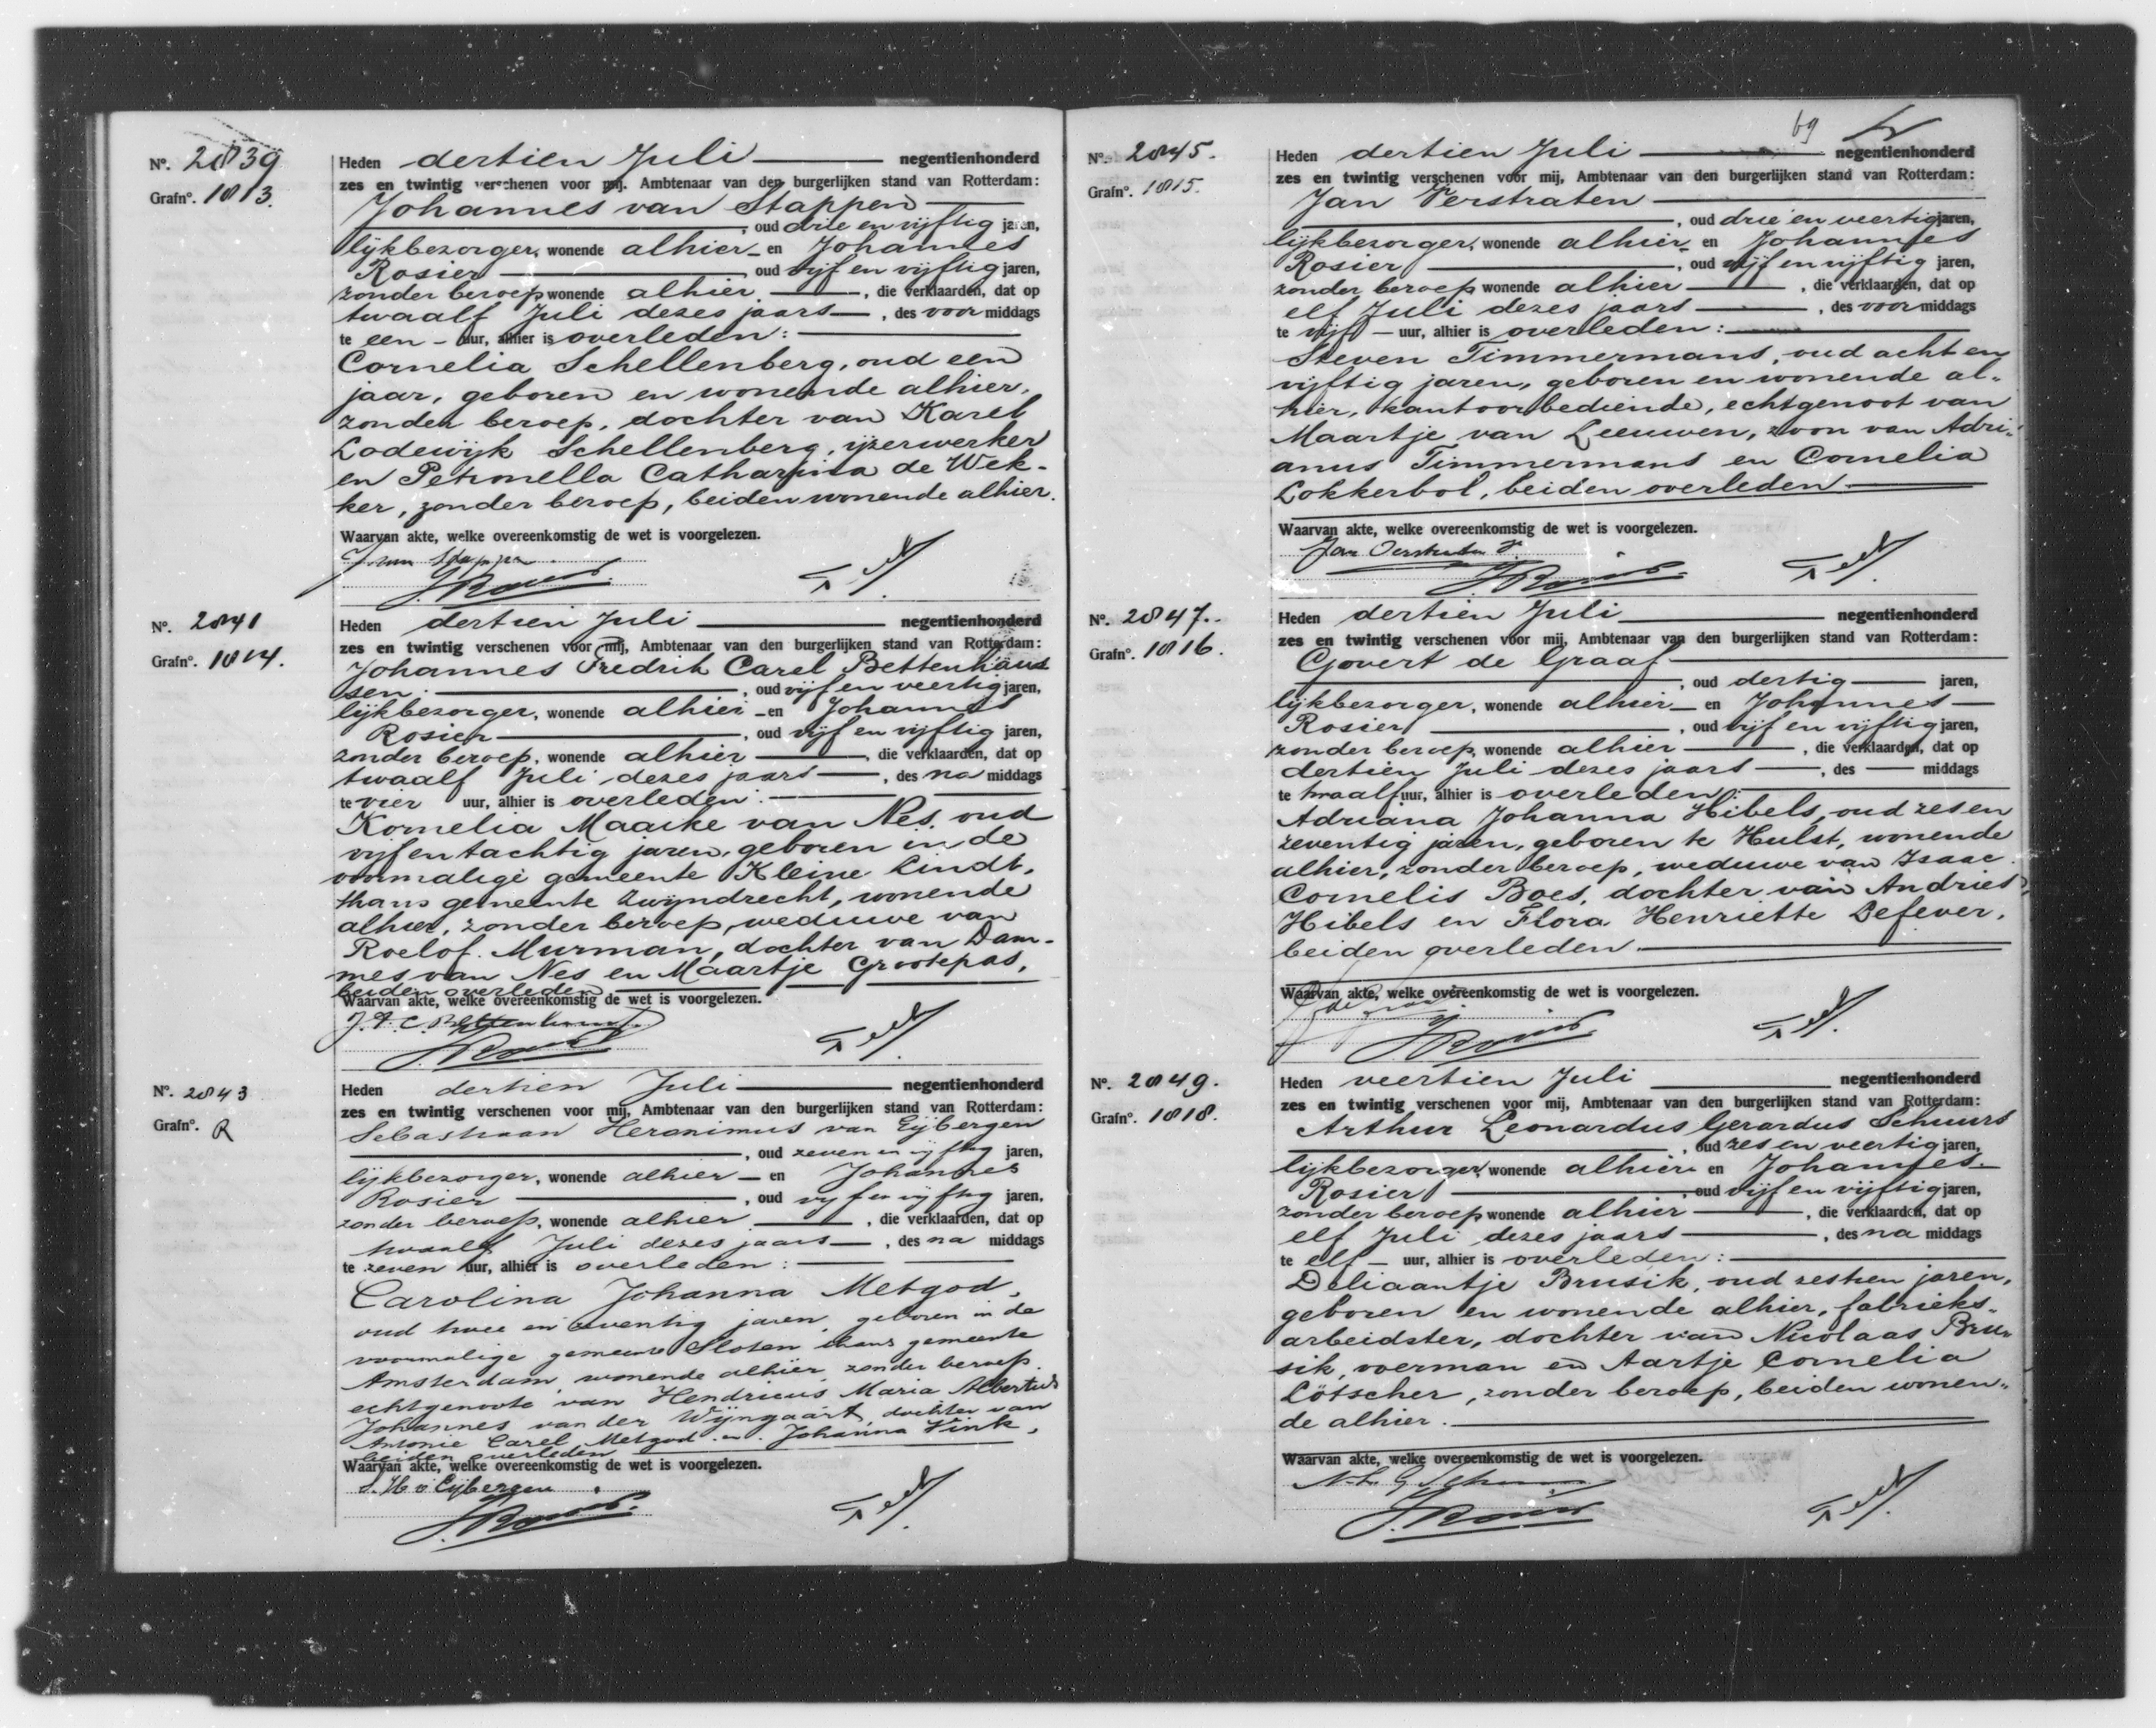 Nº. 2839
Grafnº. 1813.
Heden dertien Juli negentienhonderd
zes en twintig verschenen voor mij, Ambtenaar van den burgerlijken stand van Rotterdam:
Johannes van Stappen
, oud drie en vijftig jaren,
lijkbezorger, wonende alhier en Johannes
Rosier oud vijf en vijftig jaren,
zonder beroep wonende alhier, die verklaarden, dat op
twaalf Juli dezes jaars, des voor middags
te een uur, alhier is overleden:
Cornelia Schellenberg, oud een
jaar, geboren en wonende alhier,
zonder beroep, dochter van Karel
Lodewijk Schellenberg, ijzerwerker
en Petronella Catharina de Wek-
ker, zonder beroep, beiden wonende alhier.
Waarvan akte, welke overeenkomstig de wet is voorgelezen.
J. Rosier
Nº. 2841
Grafnº. 1814.
Heden dertien Juli negentienhonderd
zes en twintig verschenen voor mij, Ambtenaar van den burgerlijken stand van Rotterdam:
Johannes Fredrik Carel Bettenhaus
sen, oud vijf en veertig jaren,
lijkbezorger, wonende alhier en Johannes
Rosier, oud vijf en vijftig jaren,
zonder beroep, wonende alhier, die verklaarden, dat op
twaalf Juli dezes jaars, des na middags
te vier uur, alhier is overleden:
Kornelia Maaike van Nes, oud
vijf en tachtig jaren, geboren in de
voormalige gemeente Kleine Lindt,
thans gemeente Zwijndrecht, wonende
alhier, zonder beroep, weduwe van
Roelof Murman, dochter van Dam-
mes van Nes en Maartje Grootepas,
beiden overleden
Waarvan akte, welke overeenkomstig de wet is voorgelezen.
J. F. C. Bettenhaussen
J. Rosier
Nº. 2843
Grafnº. R
Heden dertien Juli negentienhonderd
zes en twintig verschenen voor mij, Ambtenaar van den burgerlijken stand van Rotterdam:
Sebastiaan Heronimus van Eijbergen
, oud zeven en vijftig jaren,
lijkbezorger, wonende alhier en Johannes
Rosier, oud vijf en vijftig jaren,
zonder beroep, wonende alhier, die verklaarden, dat op
twaalf Juli dezes jaars, des na middags
te zeven uur, alhier is overleden:
Carolina Johanna Metgod,
oud twee en zeventig jaren, geboren in de
voormalige gemeente Sloten thans gemeente
Amsterdam, wonende alhier, zonder beroep.
echtgenoote van Hendricus Maria Albertus
Johannes van der Wijngaart, dochter van
Antonie Carel Metgod en Johanna Vink,
beiden overleden
Waarvan akte, welke overeenkomstig de wet is voorgelezen.
S. H. v Eijbergen
J. Rosier
69
Nº. 2845.
Grafnº. 1815.
Heden dertien Juli negentienhonderd
zes en twintig verschenen voor mij, Ambtenaar van den burgerlijken stand van Rotterdam:
Jan Verstraten
, oud drie en veertig jaren,
lijkbezorger, wonende alhier en Johannes
Rosier, oud vijf en vijftig jaren,
zonder beroep wonende alhier, die verklaarden, dat op
elf Juli dezes jaars, des voor middags
te vijf uur, alhier is overleden:
Steven Timmermans, oud acht en
vijftig jaren, geboren en wonende al-
hier, kantoorbediende, echtgenoot van
Maartje van Leeuwen, zoon van Adri-
anus Timmermans en Cornelia
Lokkerbol, beiden overleden.
Waarvan akte, welke overeenkomstig de wet is voorgelezen.
Jan Verstraten
J. Rosier
Nº. 2847.
Grafnº. 1816.
Heden dertien Juli negentienhonderd
zes en twintig verschenen voor mij, Ambtenaar van den burgerlijken stand van Rotterdam:
Govert de Graaf
, oud dertig jaren,
lijkbezorger, wonende alhier en Johannes
Rosier, oud vijf en vijftig jaren,
zonder beroep, wonende alhier, die verklaarden, dat op
dertien Juli dezes jaars, des middags
te twaalf uur, alhier is overleden:
Adriana Johanna Hibels, oud zes en
zeventig jaren, geboren te Hulst, wonende
alhier, zonder beroep, weduwe van Isaac
Cornelis Boes, dochter van Andries
Hibels en Flora Henriette Defever,
beiden overleden.
Waarvan akte, welke overeenkomstig de wet is voorgelezen.
J. Rosier
Nº. 2849.
Grafnº. 1818.
Heden veertien Juli negentienhonderd
zes en twintig verschenen voor mij, Ambtenaar van den burgerlijken stand van Rotterdam:
Arthur Leonardus Gerardus Schuurs
, oud zes en veertig jaren,
lijkbezorger, wonende alhier en Johannes
Rosier, oud vijf en vijftig jaren,
zonder beroep wonende alhier, die verklaarden, dat op
elf Juli dezes jaars, des na middags
te elf uur, alhier is overleden:
Deliaantje Brusik, oud zestien jaren,
geboren en wonende alhier, fabrieks-
arbeidster, dochter van Nicolaas Bru-
sik, voerman en Aartje Cornelia
Lötscher, zonder beroep, beiden wonen-
de alhier.
Waarvan akte, welke overeenkomstig de wet is voorgelezen.
J. Rosier